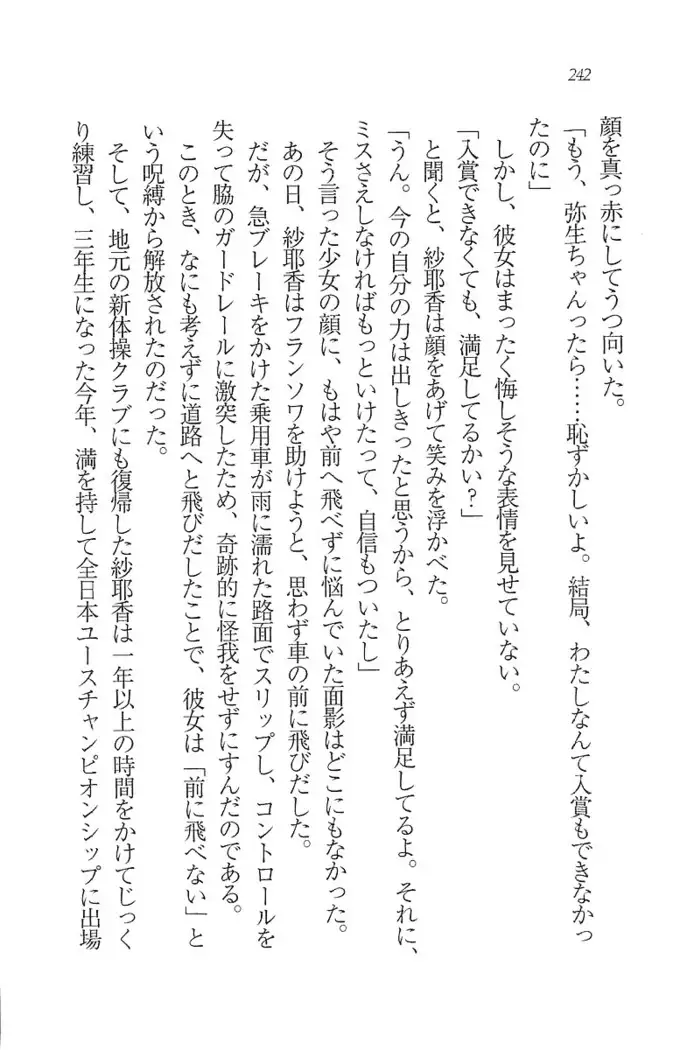 242
顔を真っ赤にしてうつ向いた。
「もう、弥生ちゃんったら……恥ずかしいよ。結局、わたしなんて入賞もできなかっ
たのに」
しかし、彼女はまったく悔しそうな表情を見せていない。
「入賞できなくても、満足してるかい？」
と聞くと、紗耶香は顔をあげて笑みを浮かべた。
「うん。今の自分の力は出しきったと思うから、とりあえず満足してるよ。それに、
ミスさえしなければもっといけたって、自信もついたし」
そう言った少女の顔に、もはや前へ飛べずに悩んでいた面影はどこにもなかった。
あの日、紗耶香はフランソワを助けようと、思わず車の前に飛びだした。
だが、急ブレーキをかけた乗用車が雨に濡れた路面でスリップし、コントロールを
失って脇のガードレールに激突したため、奇跡的に怪我をせずにすんだのである。
このとき、なにも考えずに道路へと飛びだしたことで、彼女は「前に飛べない」と
いう呪縛から解放されたのだった。
そして、地元の新体操クラブにも復帰した紗耶香は一年以上の時間をかけてじっく
り練習し、三年生になった今年、満を持して全日本ユースチャンピオンシップに出場